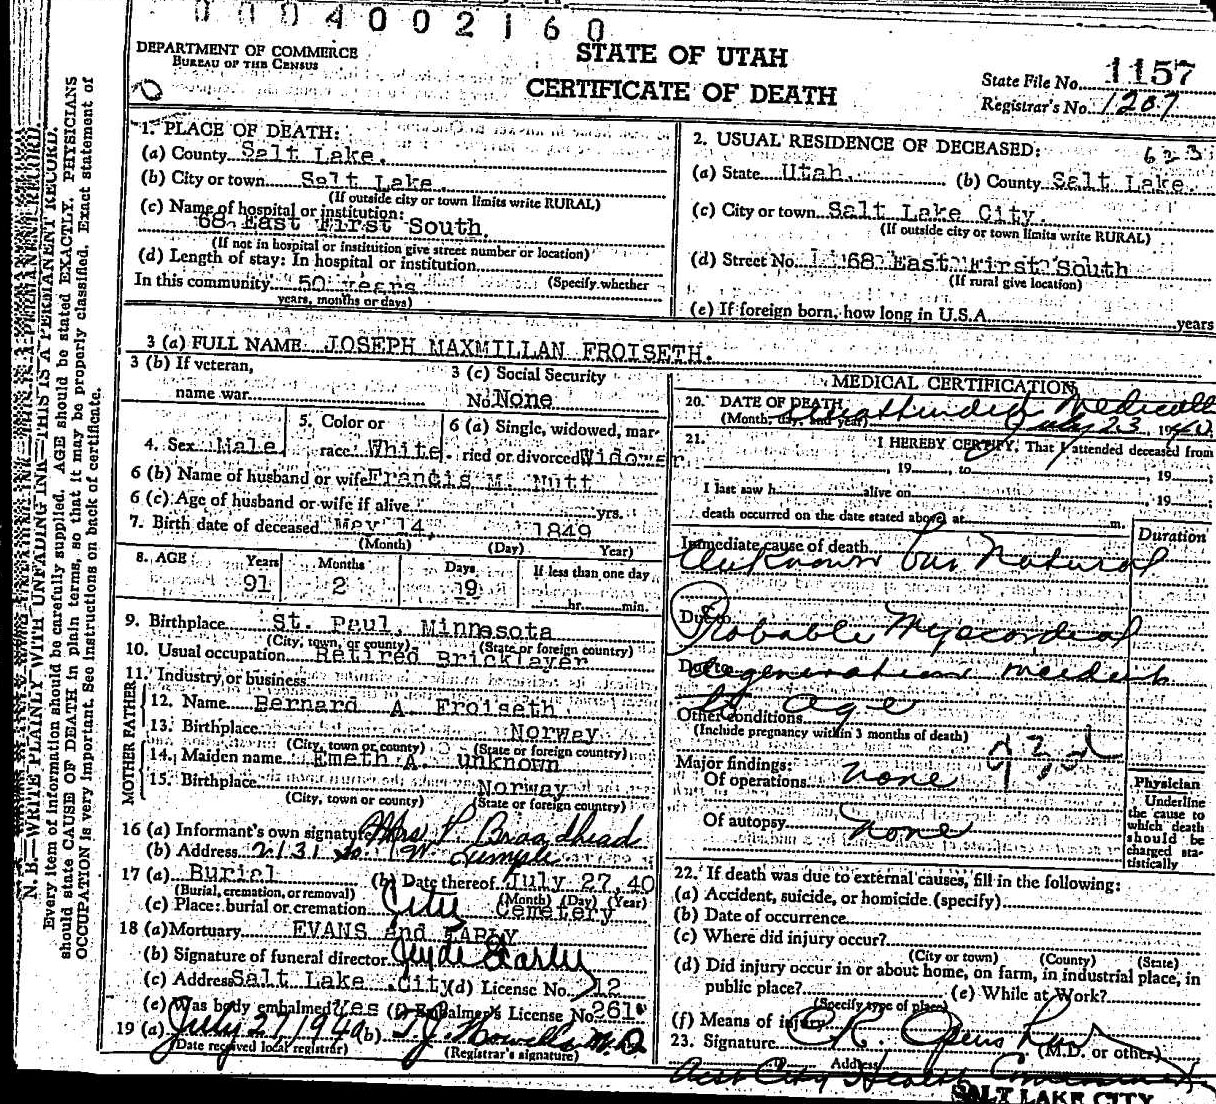 0004002160
DEPARTMENT OF COMMERCE
BUREAU OF THE CENSUS
STATE OF UTAH
CERTIFICATE OF DEATH
State File No. 1157
Registrar's No. 1207
N. B.—WRITE PLAINLY WITH UNFADING INK—THIS IS A PERMANENT RECORD.
Every item of information should be carefully supplied. AGE should be stated EXACTLY. PHYSICIANS
should state CAUSE OF DEATH in plain terms, so that it may be properly classified. Exact statement of
OCCUPATION is very important. See instructions on back of certificate.
1. PLACE OF DEATH:
(a) County Salt Lake.
(b) City or town Salt Lake.
(If outside city or town limits write RURAL)
(c) Name of hospital or institution:
68 East First South.
(If not in hospital or institution give street number or location)
(d) Length of stay: In hospital or institution
In this community 50 years (Specify whether
years, months or days)
2. USUAL RESIDENCE OF DECEASED:
623
(a) State Utah. (b) County Salt Lake.
(c) City or town Salt Lake City.
(If outside city or town limits write RURAL)
(d) Street No. 68 East First South
(If rural give location)
(e) If foreign born, how long in U.S.A. years
3 (a) FULL NAME JOSEPH MAXMILLAN FROISETH.
3 (b) If veteran,
name war
3 (c) Social Security
No. None
4. Sex Male.
5. Color or
race White.
6 (a) Single, widowed, mar-
ried or divorced Widower
6 (b) Name of husband or wife Francis M. Nutt
6 (c) Age of husband or wife if alive yrs.
7. Birth date of deceased May 14, 1849
(Month) (Day) Year)
8. AGE Years Months Days If less than one day
91 2 19 hr. min.
9. Birthplace St. Paul, Minnesota
(City, town, or county) (State or foreign country)
10. Usual occupation Retired Bricklayer
11. Industry or business
FATHER
12. Name Bernard A. Froiseth.
13. Birthplace Norway
(City, town or county) (State or foreign country)
MOTHER
14. Maiden name Emeth A. unknown
15. Birthplace Norway
(City, town or county) (State or foreign country)
16 (a) Informant's own signature Mrs P. Broadhead
(b) Address 2131 So. W. Temple
17 (a) Burial (b) Date thereof July 27, 40
(Burial, cremation, or removal) (Month) (Day) (Year)
(c) Place: burial or cremation City Cemetery
18 (a) Mortuary EVANS and EARLY
(b) Signature of funeral director Clyde Early
(c) Address Salt Lake City (d) License No. 12
(e) Was body embalmed? Yes (f) Embalmer's License No. 261
19 (a) July 27 1940 (b) T.J. Howells M.D.
(Date received local registrar) (Registrar's signature)
MEDICAL CERTIFICATION
20. DATE OF DEATH Unattended Medically
(Month, day, and year) July 23, 1940
21. I HEREBY CERTIFY, That I attended deceased from
, 19 , to , 19 ;
I last saw h alive on , 19 ;
death occurred on the date stated above, at m.
Duration
Immediate cause of death
Unknown but Natural
Due to
Probable Myocardial
Due to
degeneration incident
to age
Other conditions
(Include pregnancy within 3 months of death)
93d
Major findings:
Of operations none
Of autopsy none
Physician
Underline
the cause to
which death
should be
charged sta-
tistically
22. If death was due to external causes, fill in the following:
(a) Accident, suicide, or homicide (specify)
(b) Date of occurrence
(c) Where did injury occur?
(City or town) (County) (State)
(d) Did injury occur in or about home, on farm, in industrial place, in
public place? (e) While at Work?
(Specify type of place)
(f) Means of injury
23. Signature
(M.D. or other)
Address
City Health Commissioner
SALT LAKE CITY